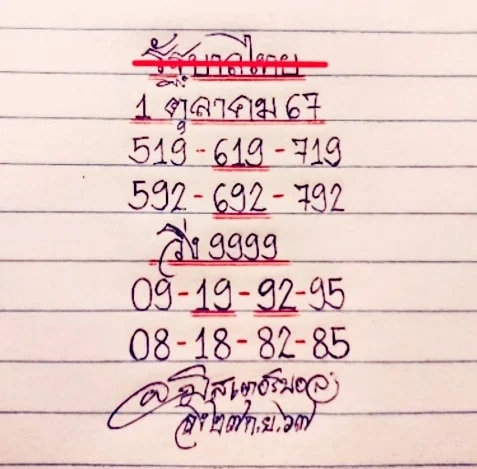 รัฐบาลไทย
1 ตุลาคม 67
519-619-719
592-692-792
วิ่ง 9999
09-19-92-95
08-18-82-85
๒๗ ก.ย. ๖๗